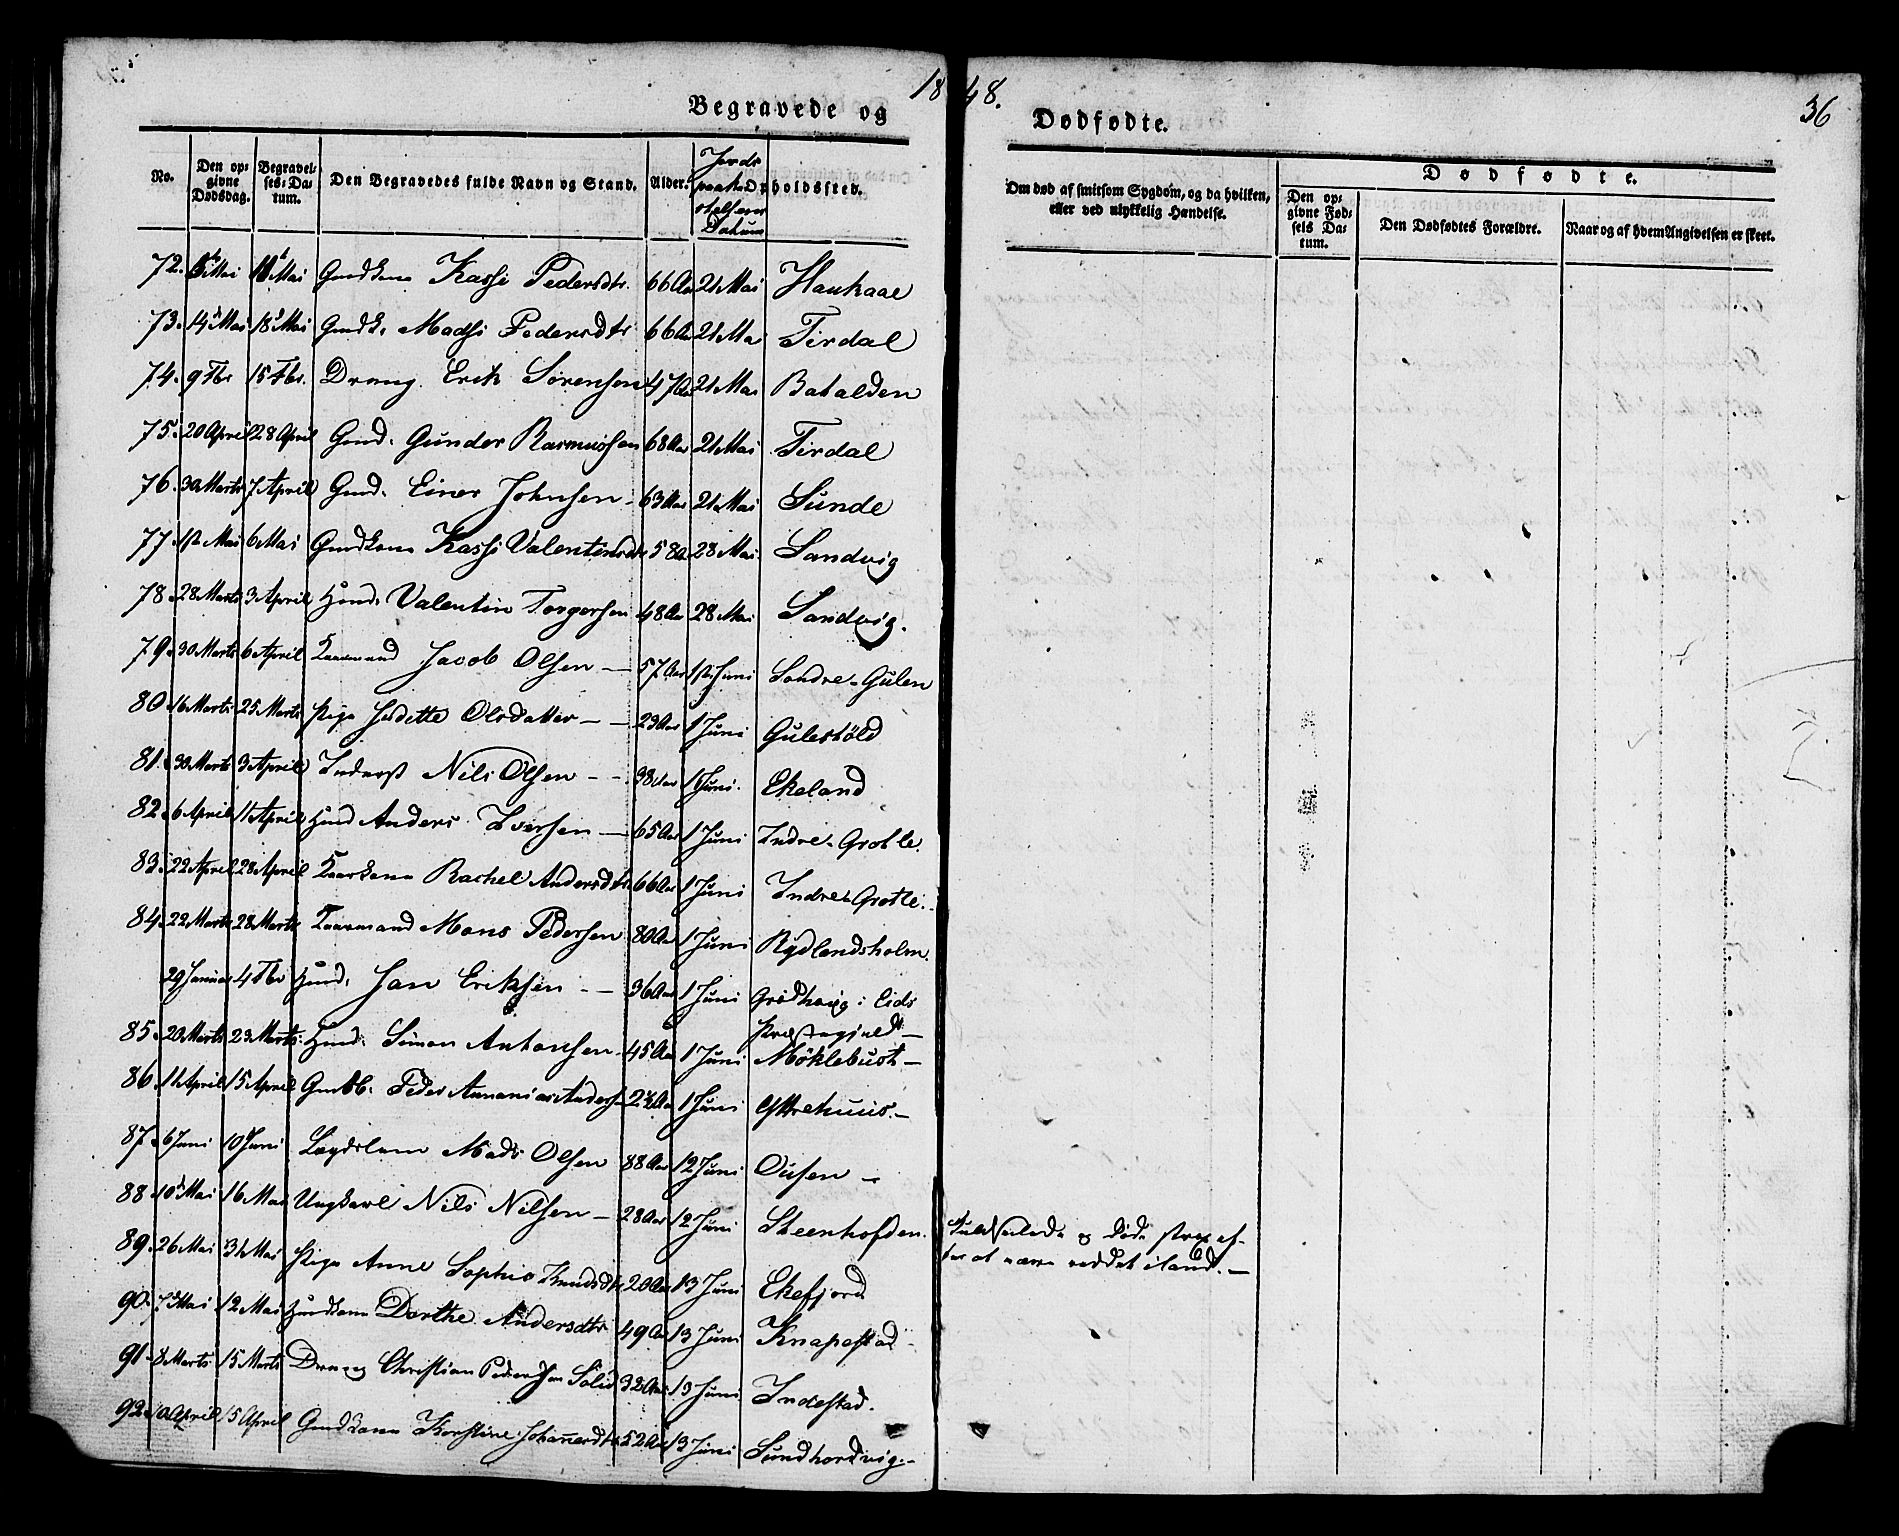 1848.
36
Begravede og
Dødfødte.
No.
Den opgivne Dødsdag.
Begravelses-Datum.
Den Begravedes fulde Navn og Stand.
Alder.
Jords paakastelsens Datum
Opholdssted.
Om død af smitsom Sygdom, og da hvilken, eller ved ulykkelig Hændelse.
Dødfødte.
Den opgivne Fødsels Datum.
Den Dødfødtes Forældre.
Naar og af hvem Angivelsen er skeet.
72. Mai Mai Gmdkone Kassi Pedersdtr. 66 Aar 21 Mai Haukaae
73. 14 Mai 18 Mai Gmdk. Madsi Pedersdtr 66 Aar 21 Mai Tirdal
74. 9 Fbr 15 Fbr. Dreng Erik Sørensen 4 21 Mai Batalden
75. 20 April 28 April Gmd. Gunder Rasmussen 68 Aar 21 Mai Tirdal
76. 30 Marts 7 April Gmd. Einer Johnsen - 63 Aar 21 Mai Sunde
77. 1ste Mai 6 Mai Gmdkone Kassi Valentinsdtr 58 Aar 28 Mai Sandvig
78. 28 Marts 3 April Huusmd. Valentin Torgersen 48 Aar 28 Mai Sandvig.
79. 30 Marts 6 April Kaarmand Jacob Olsen - 57 Aar 1ste Juni Søndre-Gulen
80. 16 Marts 25 Marts Pige Judette Olsdatter - - 23 Aar 1 Juni Gulestöld
81. 30 Marts 3 April Inderst Nils Olsen - - 38 Aar 1 Juni. Ekeland
82. 6 April 11 April Huusmd Anders Iversen - 65 Aar 1 Juni Indre-Grotle.
83. 22 April 28 April Kaarkone Rachel Andersdtr 66 Aar 1 Juni Indre-Grotle.
84. 22 Marts 28 Marts Kaarmand Mons Pedersen 80 Aar 1 Juni Rydlandsholm.
29 Januar 4 Fbr Huusmd. Jan Eriksen - - 36 Aar 1 Juni Grødhaug i Eids
Præstegield -
85. 20 Marts 23 Marts. Huusmd. Simon Antonsen. 45 Aar 1 Juni Möklebust -
86. 11 April 15 April Gmdb. Peder Annanias Anders 2 Aar 1 Juni Yttrehuus. -
87. 6 Juni 10 Juni Lægdslem Mads Olsen 88 Aar 12 Juni Ousen -
88. 10 Mai 16 Mai Ungkarl Nils Nilsen - 28 Aar 12 Juni Steenhofden. Kuldseilede og døde strax ef-
ter at være reddet iland. -
89. 26 Mai 31 Mai Pige Anne Sophie Knudsdtr 20 Aar 13 Juni Ekefjord
90. 7 Mai 12 Mai Huusmdkone Dorthe Andersdtr 49 Aar 13 Juni Knapestad
91. 8 Marts 15 Marts Dreng Christian Pedersen Solid 32 Aar 13 Juni Indestad.
92. 10 April 15 April Gmdkone Kirstine Johannesdtr 52 Aar 13 Juni Sundhordvig. -